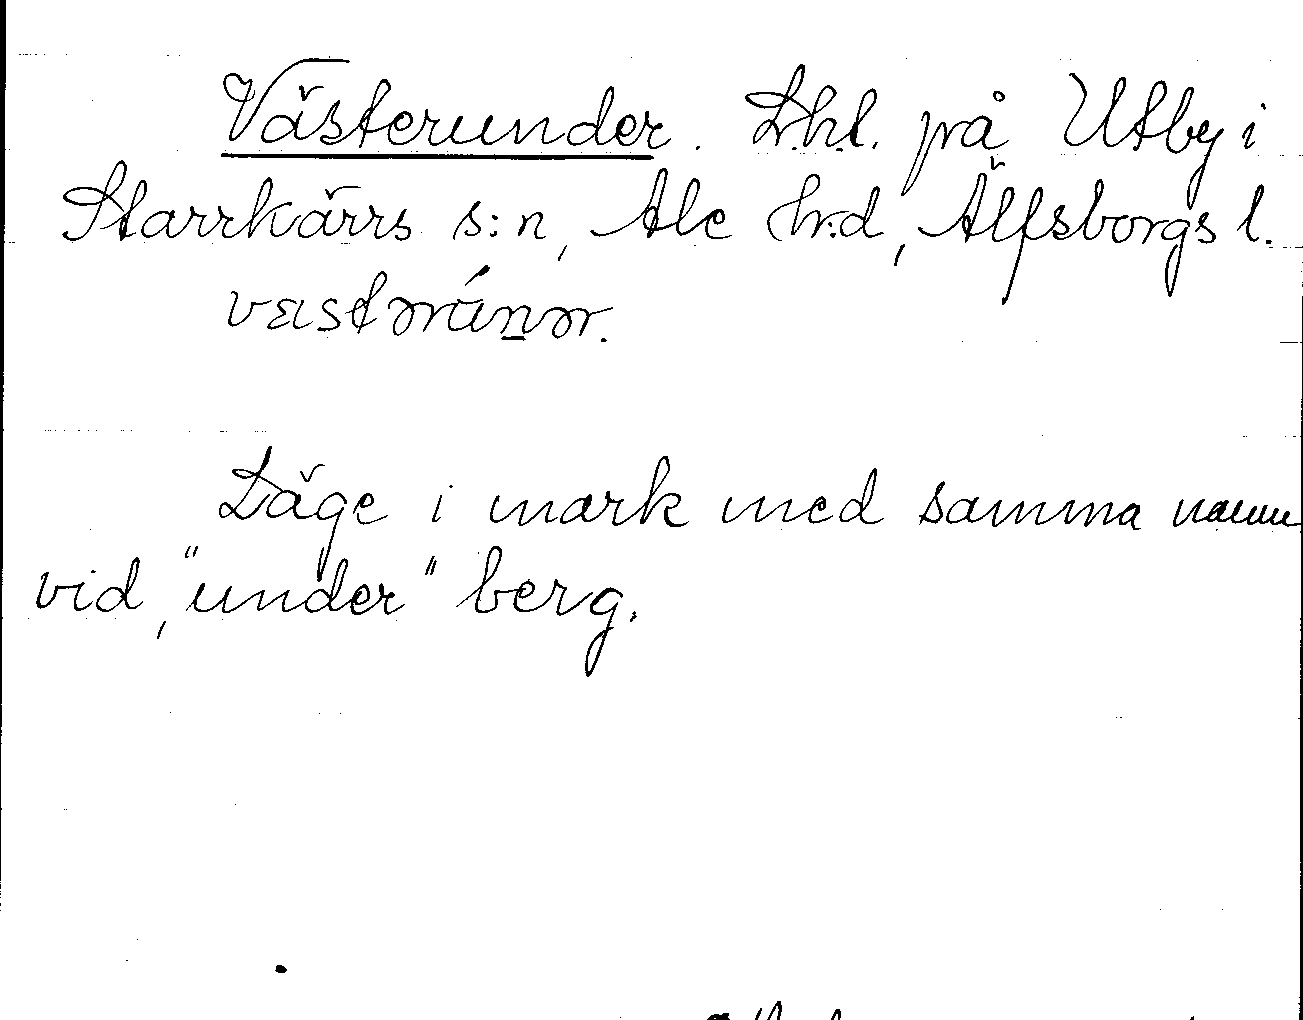 Västerunder. L.h.l. på Utby i
Starrkärrs s:n, Ale hr:d, Älfsborgs l.
væstərúnər.
Läge i mark med samma namn
vid, "under" berg.